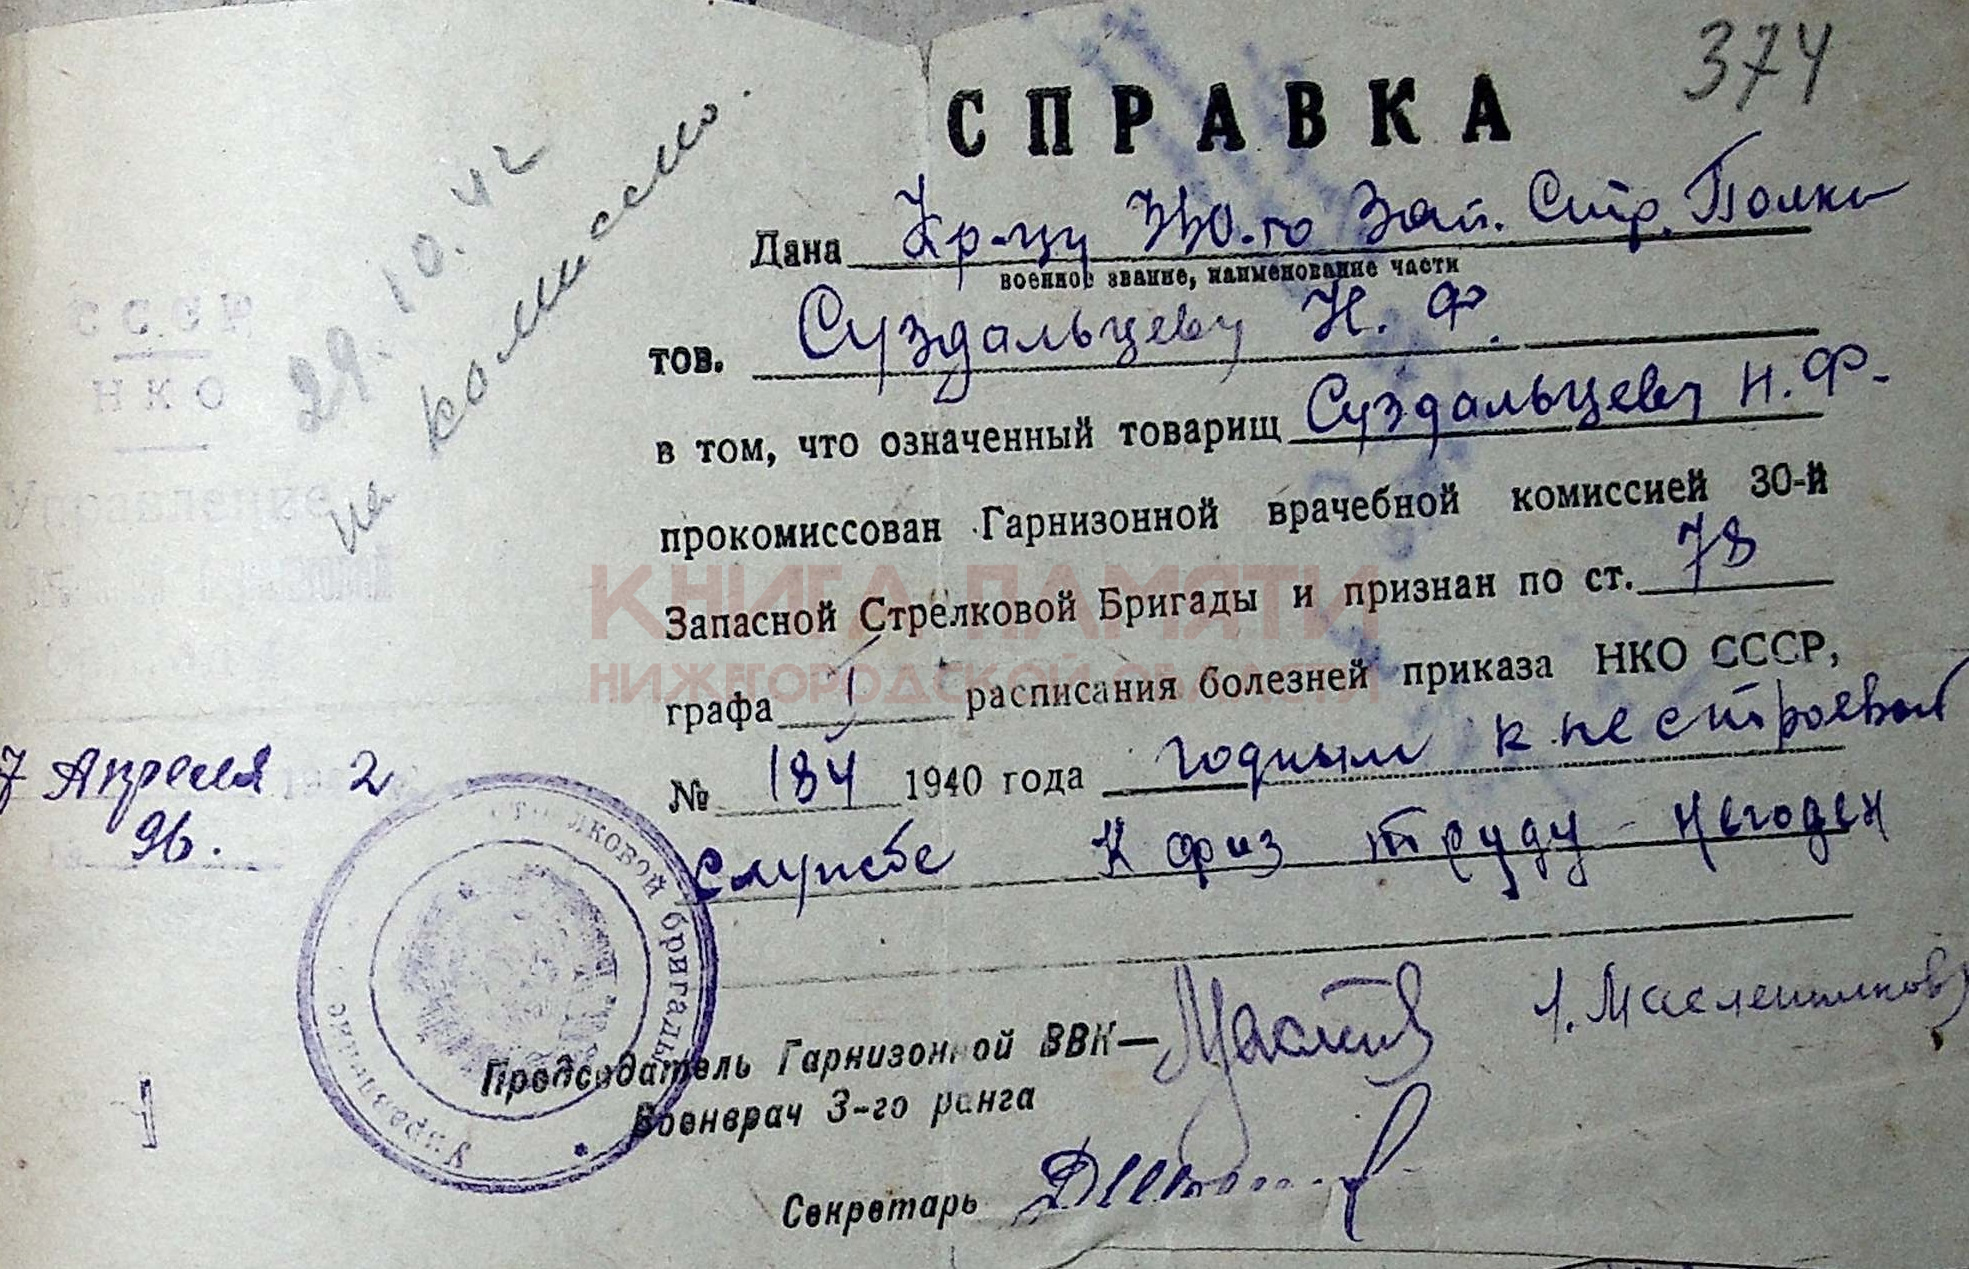 374
СПРАВКА
29.10.42
на комиссию.
Дана Кр-цу 330.го Зап. Стр. Полка
военное звание, наименование части
тов. Суздальцеву Н. Ф.
в том, что означенный товарищ Суздальцеву Н.Ф.
прокомиссован Гарнизонной врачебной комиссией 30-й
Запасной Стрелковой Бригады и признан по ст. 78
графа 1 расписания болезней приказа НКО СССР,
№ 184 1940 года годным к нестроевой
службе К физ труду - негоден
СССР
НКО
Управление
7 Апреля 2
96.
стрелковой бригады
Управление
Председатель Гарнизонной ВВК—
Л. Масленников
Военврач 3-го ранга
Секретарь
КНИГА ПАМЯТИ
НИЖЕГОРОДСКОЙ ОБЛАСТИ